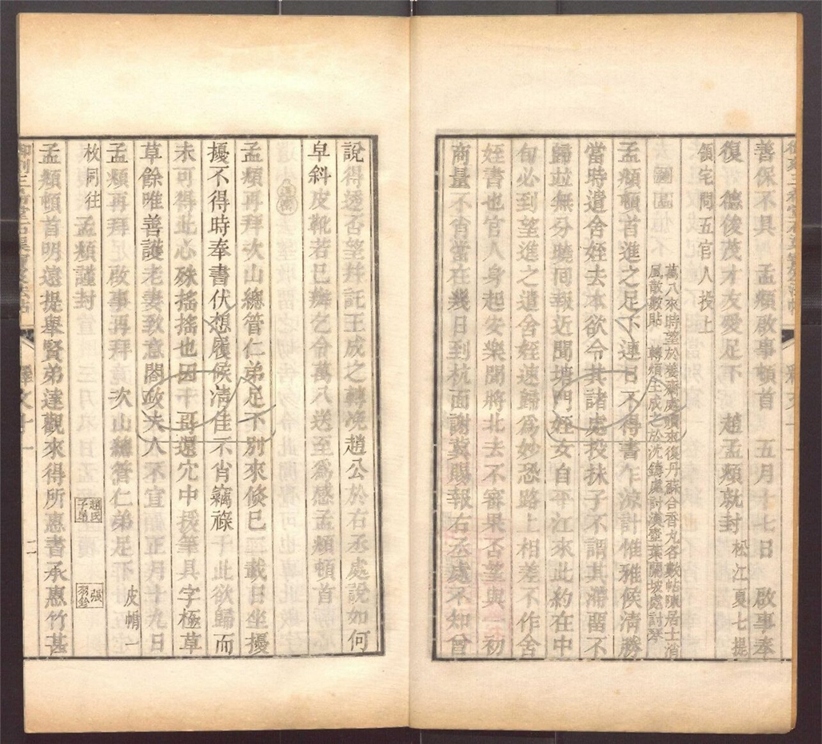 善保不具 孟頫啟事頓首 五月十七日 啟事奉
復 德後茂才友愛足下 趙孟頫就封 松江夏七提
領宅問五官人投上
萬八來時望於
風散數貼
孟頫頓首進之足下連日不得書作計惟雅候清勝
當時遣舍姪去本欲令其諸處投抹子不謂其滯留不
歸並無分曉回報近聞塘門姪女自平江來此約在中
旬必到望進之遣舍姪速歸為妙恐路上相差不作舍
姪書也官人身起安樂聞將北去不審果否望與一初
商量不肖當在幾日到杭面謝冀賜報右丞處不知曾
說得透否望并託王成之轉浼趙公於右丞處說如何
皁斜皮靴若已辦乞令萬八送至為感孟頫頓首
孟頫再拜次山總管仁弟足下別來倏已兩載日坐擾
擾不得時奉書伏想履候清佳不肖竊祿于此欲歸而
未可得此心殊搖搖也因千哥還冗中援筆具字極草
草餘唯善護老妻致意閤政夫人不宣正月十九日
孟頫再拜 啟事再拜 次山總管仁弟足下 皮帽一
枚同往 孟頫謹封
孟頫頓首明遠提舉賢弟達觀來得所惠書承惠竹甚